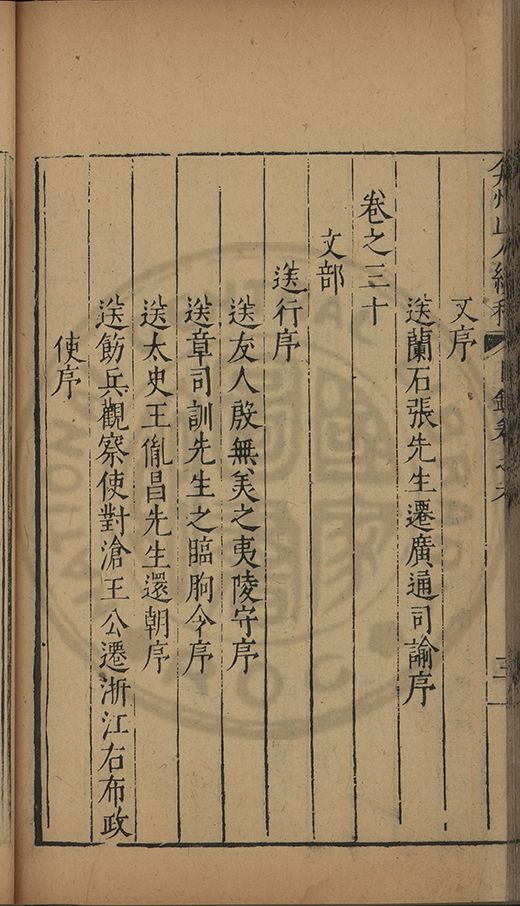 弇州山人續稿 目錄卷之九 三
文序
送蘭石張先生遷廣通司諭序
卷之三十
文部
送行序
送友人殷無美之夷陵守序
送章司訓先生之臨朐令序
送太史王胤昌先生還朝序
送飭兵觀察使對滄王公遷浙江右布政
使序